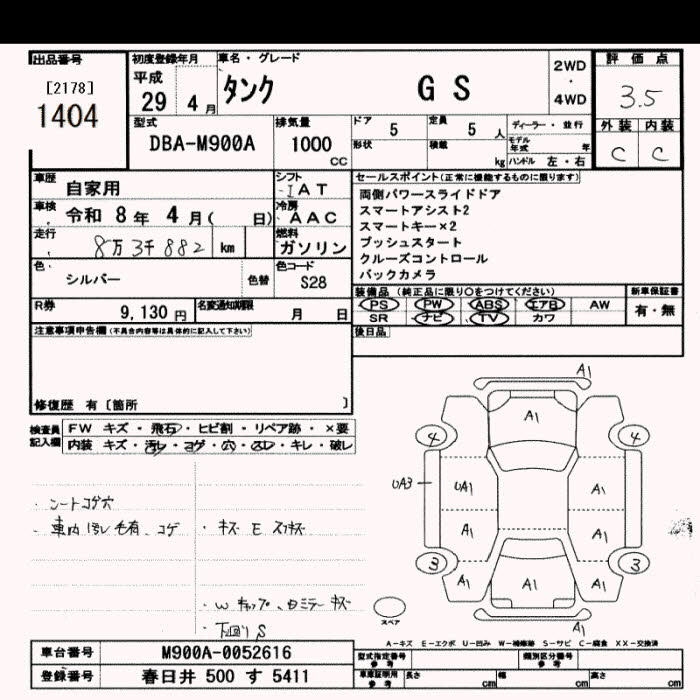 出品番号
[2178]
1404
初度登録年月
平成
29 4月
車名・グレード
タンク GS
2WD
・
4WD
評価点
3.5
外装 内装
C C
型式
DBA-M900A
排気量
1000
CC
ドア 5
形状
定員 5 人
積載 kg
ディーラー・並行
モデル年式 年
ハンドル 左・右
車歴
自家用
シフト
IAT
車検
令和 8年 4月( 日)
冷房
AAC
走行
8万3千882 km
燃料
ガソリン
色
シルバー
色替
色コード
S28
R券
9,130円
名変通知期限
月 日
セールスポイント(正常に機能するものに限ります)
両側パワースライドドア
スマートアシスト2
スマートキー×2
プッシュスタート
クルーズコントロール
バックカメラ
装備品(純正品に限り○をつけてください)
PS PW ABS エアB AW
SR ナビ TV カワ
新車保証書
有・無
後日品
注意事項申告欄(不具合内容等は具体的に記入して下さい)
修復歴 有〔箇所 〕
検査員記入欄
FW キズ・飛石・ヒビ割・リペア跡・×要
内装 キズ・汚レ・コゲ・穴・スレ・キレ・破レ
・シートコゲ穴
・キズ E
A1
A1
4
4
UA3
UA1
A1
A1
A1
3
3
A1
A1
A1
A1
スペア
A-キズ E-エクボ U-凹み W-補修跡 S-サビ C-腐食 XX-交換済
車台番号
M900A-0052616
登録番号
春日井 500 す 5411
型式指定番号
参考
類別区分番号
参考
車庫証明用
参考
長さ cm
幅 cm
高さ cm